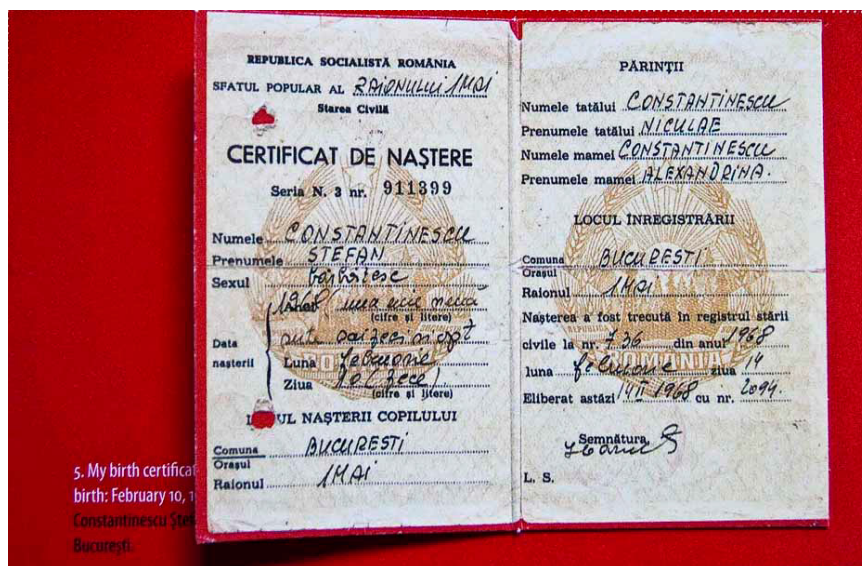 REPUBLICA SOCIALISTĂ ROMÂNIA
SFATUL POPULAR AL RAIONULUI 1 MAI
Starea Civilă
CERTIFICAT DE NAȘTERE
Seria N. 3 nr. 911399
Numele CONSTANTINESCU
Prenumele ȘTEFAN
Sexul bărbătesc
Anul 1968 una mie nouă
(cifre și litere)
Data nașterii
sute șaizeci și opt
Luna februarie
Ziua 10 (zece)
(cifre și litere)
UL NAȘTERII COPILULUI
Comuna
Orașul
BUCUREȘTI
Raionul 1 MAI
PĂRINȚII
Numele tatălui CONSTANTINESCU
Prenumele tatălui NICULAE
Numele mamei CONSTANTINESCU
Prenumele mamei ALEXANDRINA.
LOCUL ÎNREGISTRĂRII
Comuna
Orașul
BUCUREȘTI
Raionul 1 MAI
Nașterea a fost trecută în registrul stării
civile la nr. 736 din anul 1968
luna februarie ziua 14
Eliberat astăzi 14 II 1968 cu nr. 2094.
Semnătura
L. S.
ROMANIA
5. My birth certificat
birth: February 10, 1
Constantinescu Ște
București.